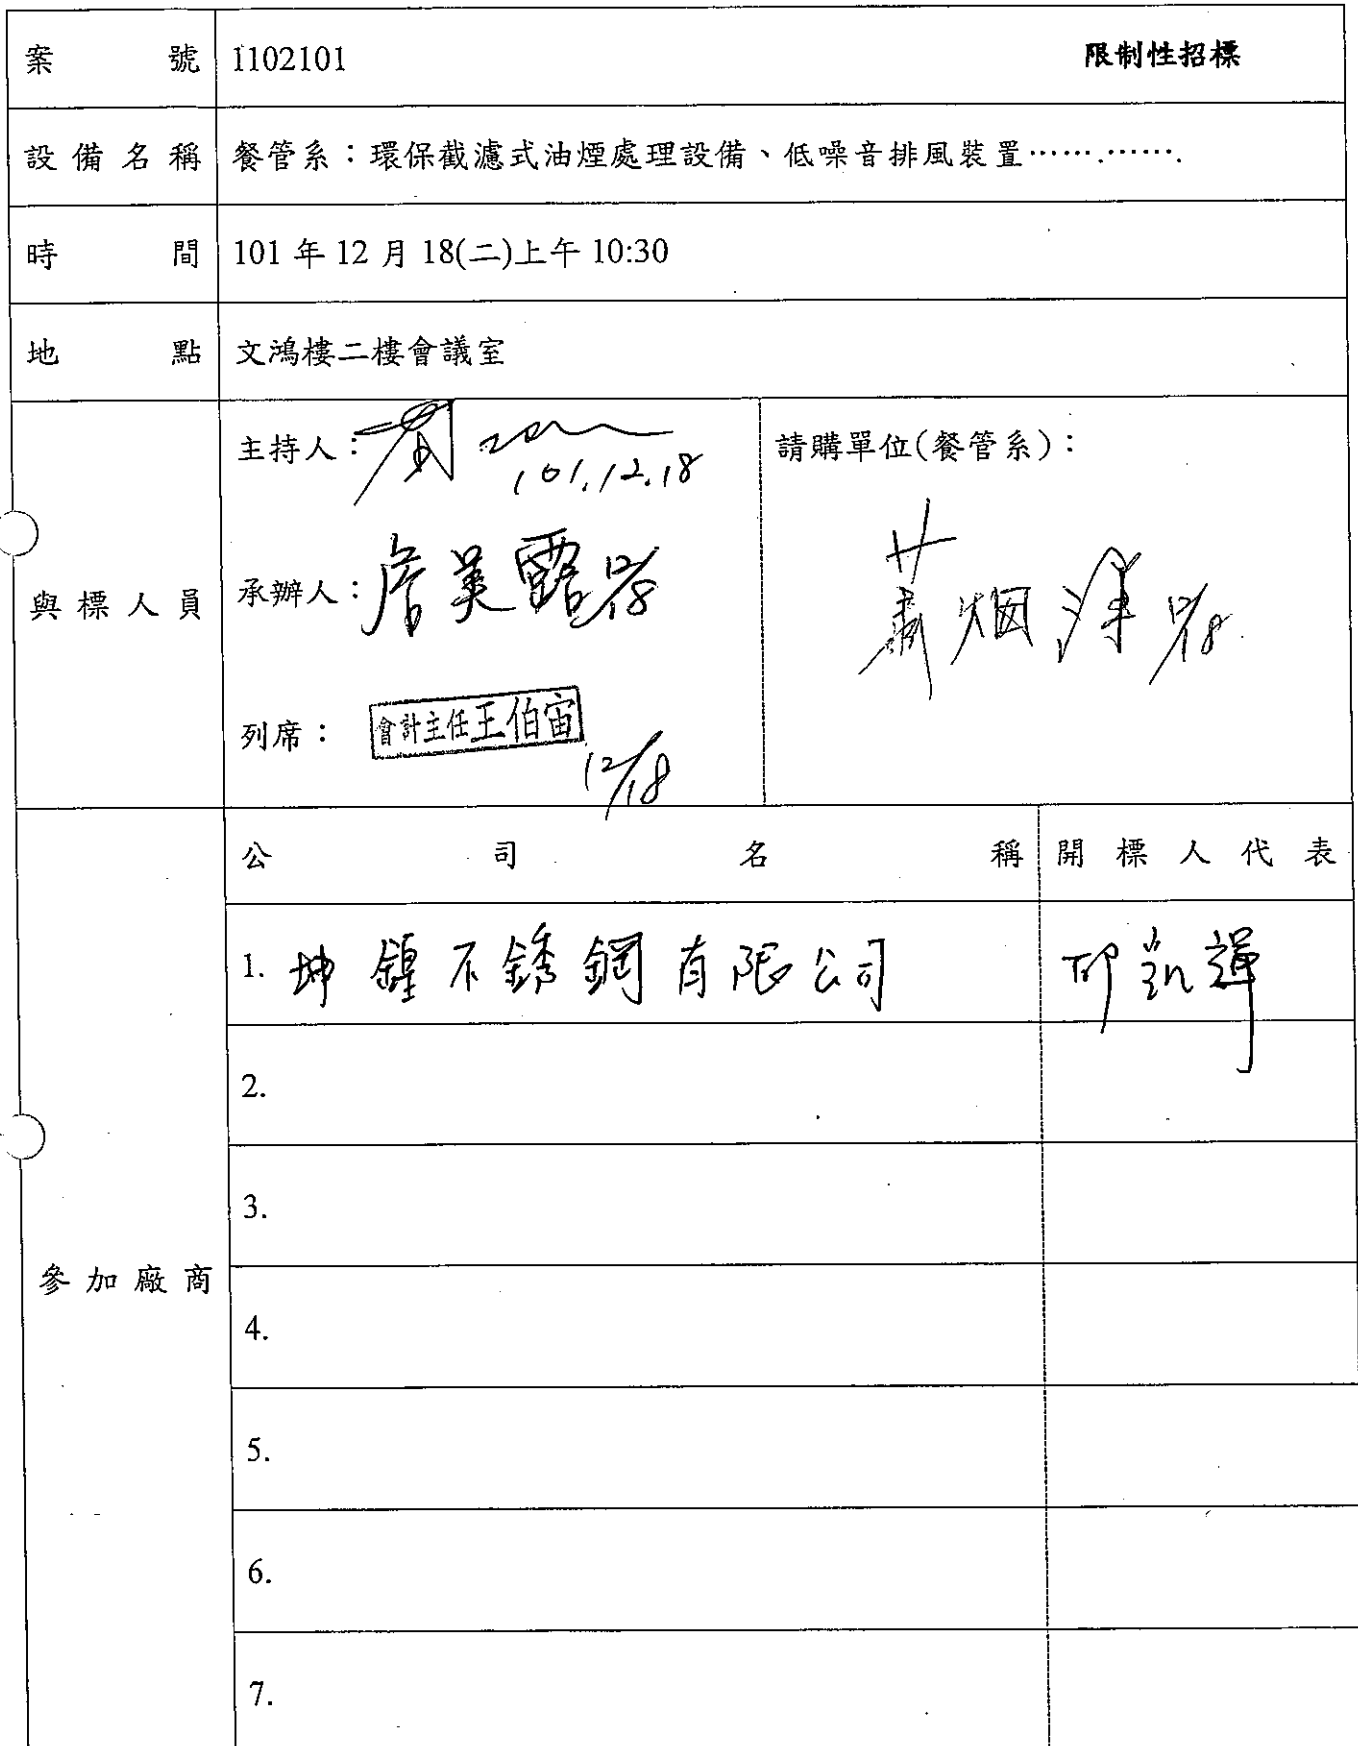 案號 1102101 限制性招標
設備名稱 餐管系：環保截濾式油煙處理設備、低噪音排風裝置…….…….
時間 101 年 12 月 18(二)上午 10:30
地點 文鴻樓二樓會議室
與標人員
主持人：
101.12.18
承辦人：詹美露 12/18
列席： 會計主任王伯宙
12/18
請購單位(餐管系)：
蕭烟淳 12/18
參加廠商
公司名稱 開標人代表
1. 坤鍠不銹鋼有限公司 邱凱輝
2.
3.
4.
5.
6.
7.